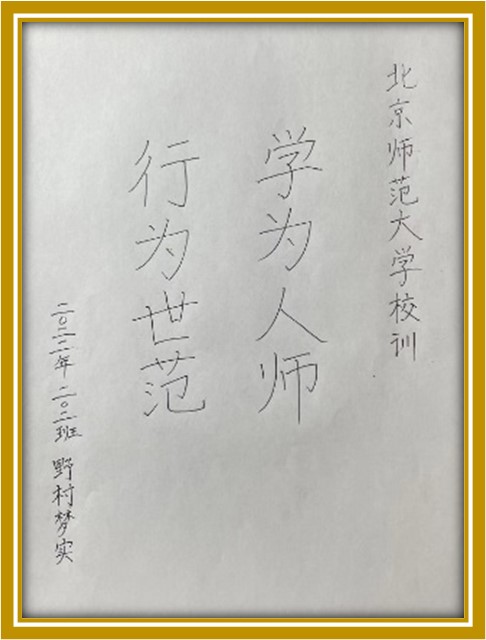 北京师范大学校训
学为人师
行为世范
二〇二二年 二〇二班 野村梦实